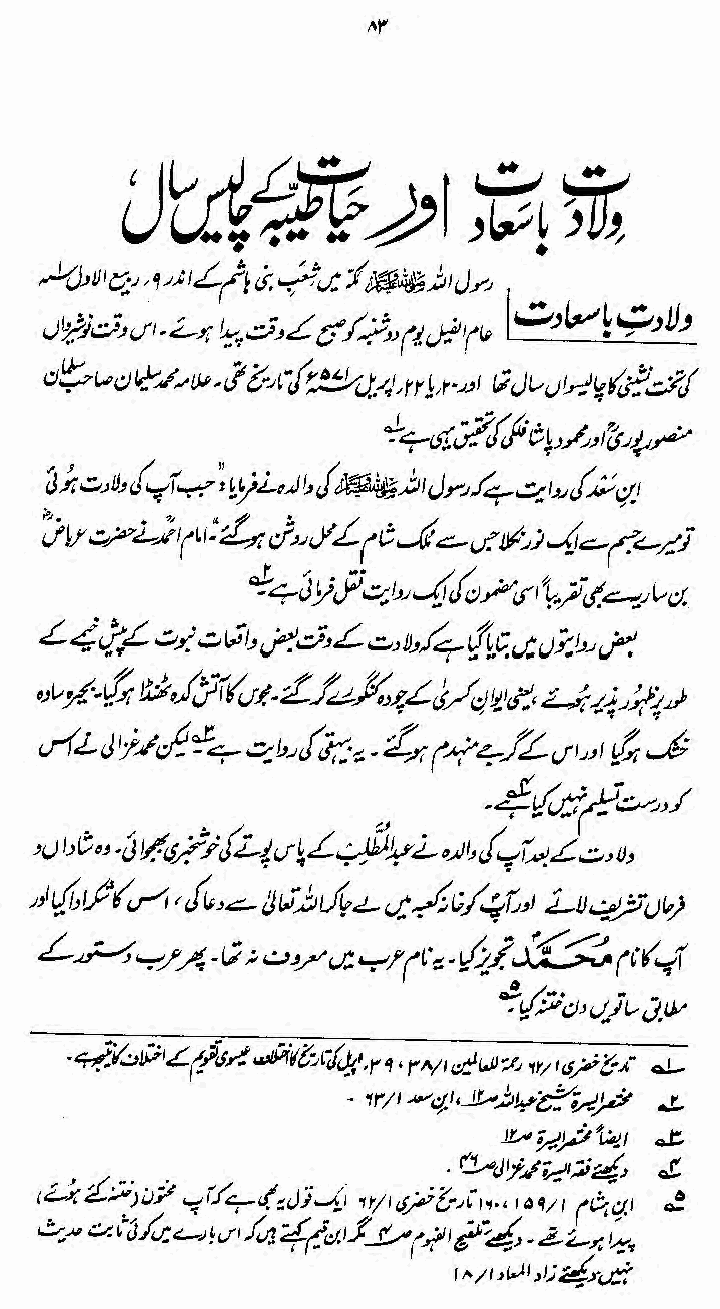 ۸۳
ولادت باسعادت اور حیات طیبہ کے چالیس سال
ولادتِ باسعادت
رسول اللہ ﷺ مکہ میں شعب بنی ہاشم کے اندر ۹؍ ربیع الاول سنہ ۱
عام الفیل یوم دوشنبہ کو صبح کے وقت پیدا ہوئے۔ اس وقت نوشیرواں
کی تخت نشینی کا چالیسواں سال تھا اور ۲۰؍ یا ۲۲؍ اپریل ۵۷۱ء کی تاریخ تھی۔ علامہ محمد سلیمان صاحب سلمان
منصور پوریؒ اور محمود پاشا فلکی کی تحقیق یہی ہے۔ ۱؎
ابنِ سَعْد کی روایت ہے کہ رسول اللہ ﷺ کی والدہ نے فرمایا: "جب آپ کی ولادت ہوئی
تو میرے جسم سے ایک نور نکلا جس سے ملک شام کے محل روشن ہو گئے"۔ امام احمدؒ نے حضرت عرباضؓ
بن ساریہ سے بھی تقریباً اسی مضمون کی ایک روایت نقل فرمائی ہے۔ ۲؎
بعض روایتوں میں بتایا گیا ہے کہ ولادت کے وقت بعض واقعات نبوت کے پیش خیمے کے
طور پر ظہور پذیر ہوئے، یعنی ایوانِ کسریٰ کے چودہ کنگورے گر گئے۔ مجوس کا آتش کدہ ٹھنڈا ہو گیا۔ بحیرہ سادہ
خشک ہو گیا اور اس کے گرجے منہدم ہو گئے۔ یہ بیہقی کی روایت ہے ۳؎ لیکن محمد غزالی نے اس
کو درست تسلیم نہیں کیا ہے۔ ۴؎
ولادت کے بعد آپ کی والدہ نے عبدالمُطَّلِب کے پاس پوتے کی خوشخبری بھجوائی۔ وہ شاداں و
فرحاں تشریف لائے اور آپؐ کو خانہ کعبہ میں لے جا کر اللہ تعالیٰ سے دعا کی، اس کا شکر ادا کیا اور
آپ کا نام مُحَمَّد تجویز کیا۔ یہ نام عرب میں معروف نہ تھا۔ پھر عرب دستور کے
مطابق ساتویں دن ختنہ کیا۔ ۵؎
۱؎ تاریخ خضری ۱/۶۲ رحمۃ للعالمین ۱/۳۸، ۳۹۔ اپریل کی تاریخ کا اختلاف عیسوی تقویم کے اختلاف کا نتیجہ ہے۔
۲؎ مختصر السیرۃ شیخ عبداللہ ص ۱۲، ابنِ سعد ۱/۶۳۔
۳؎ ایضاً مختصر السیرۃ ص ۱۲
۴؎ دیکھئے فقہ السیرۃ محمد غزالی ص ۴۶۔
۵؎ ابنِ ہشام ۱/۱۵۹، ۱۶۰ تاریخ خضری ۱/۶۲ ایک قول یہ بھی ہے کہ آپ مختون (ختنہ کئے ہوئے)
پیدا ہوئے تھے۔ دیکھئے تلقیح الفہوم ص ۴ مگر ابنِ قیم کہتے ہیں کہ اس بارے میں کوئی ثابت حدیث
نہیں دیکھئے زاد المعاد ۱/۱۸